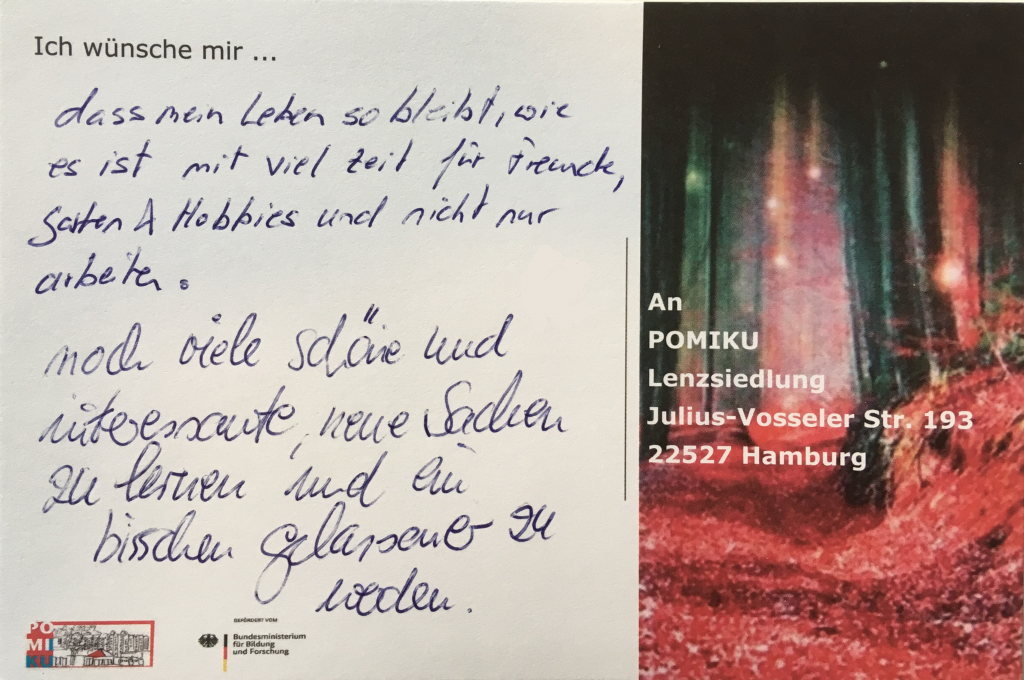 Ich wünsche mir ...
dass mein Leben so bleibt, wie
es ist mit viel Zeit für Freunde,
Garten & Hobbies und nicht nur
arbeiten.
noch viele schöne und
interessante, neue Sachen
zu lernen und ein
bisschen gelassener zu
werden.
An
POMIKU
Lenzsiedlung
Julius-Vosseler Str. 193
22527 Hamburg
PO
MI
KU
GEFÖRDERT VOM
Bundesministerium
für Bildung
und Forschung